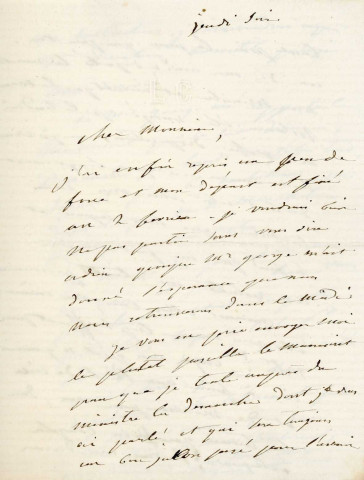 jeudi soir
cher Monsieur,
j'ai enfin repris un peu de
force et mon départ est fixé
au 2 février. je voudrais bien
ne pas partir sans vous dire
adieu quoique Mr george m'ait
donné l'espérance que nous
nous retrouverons dans le midi.
je vous en prie envoyez moi
le plutot possible le manuscrit
pour que je tente auprès du
ministre la demarche dont je vous
ai parlé et qui sera toujours
un bon jalon posé pour l'avenir